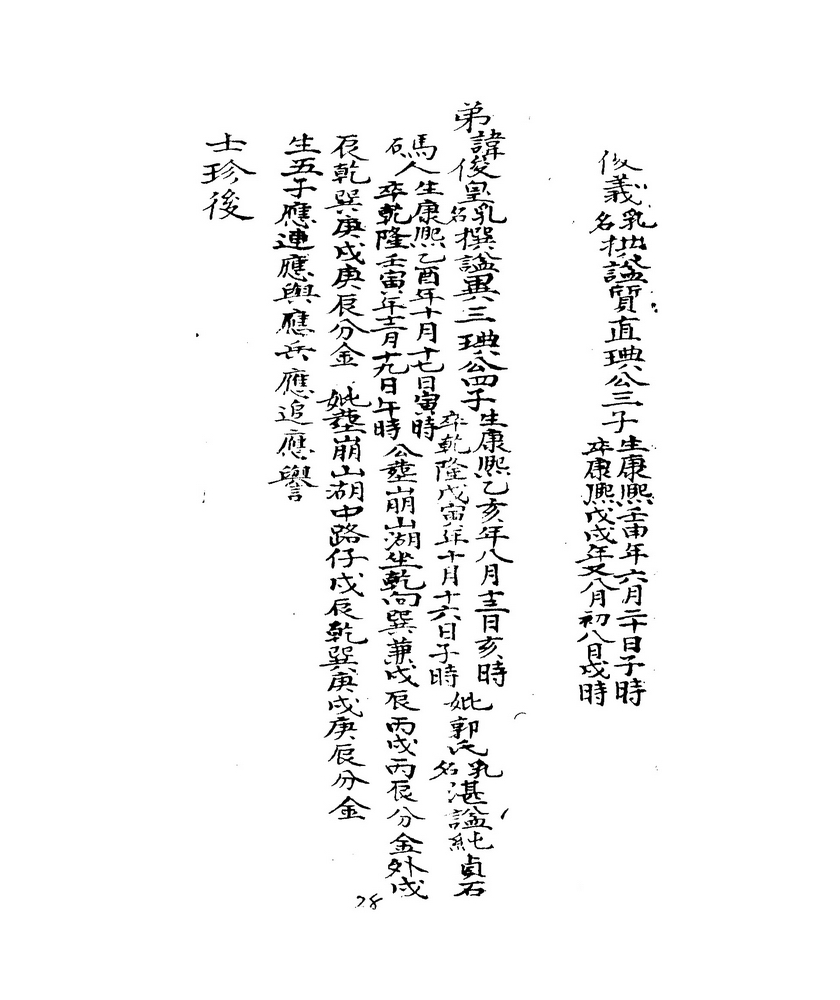 俊義乳名拱諡質直琠公三子生康熙壬申年六月二十日子時
卒康熙戊戌年又八月初八日戌時
弟諱俊皇乳名撰諡異三琠公四子生康熙乙亥年八月十三日亥時
卒乾隆戊寅年十月十六日子時
妣郭氏乳名湛諡純貞石
碼人生康熙乙酉年十月十七日寅時
卒乾隆壬寅年十二月十九日午時
公塟崩山湖坐乾向巽兼戌辰丙戌丙辰分金外戌
辰乾巽庚戌庚辰分金 妣塟崩山湖中路仔戌辰乾巽庚戌庚辰分金
生五子應連應與應兵應追應譽
士珍後
28